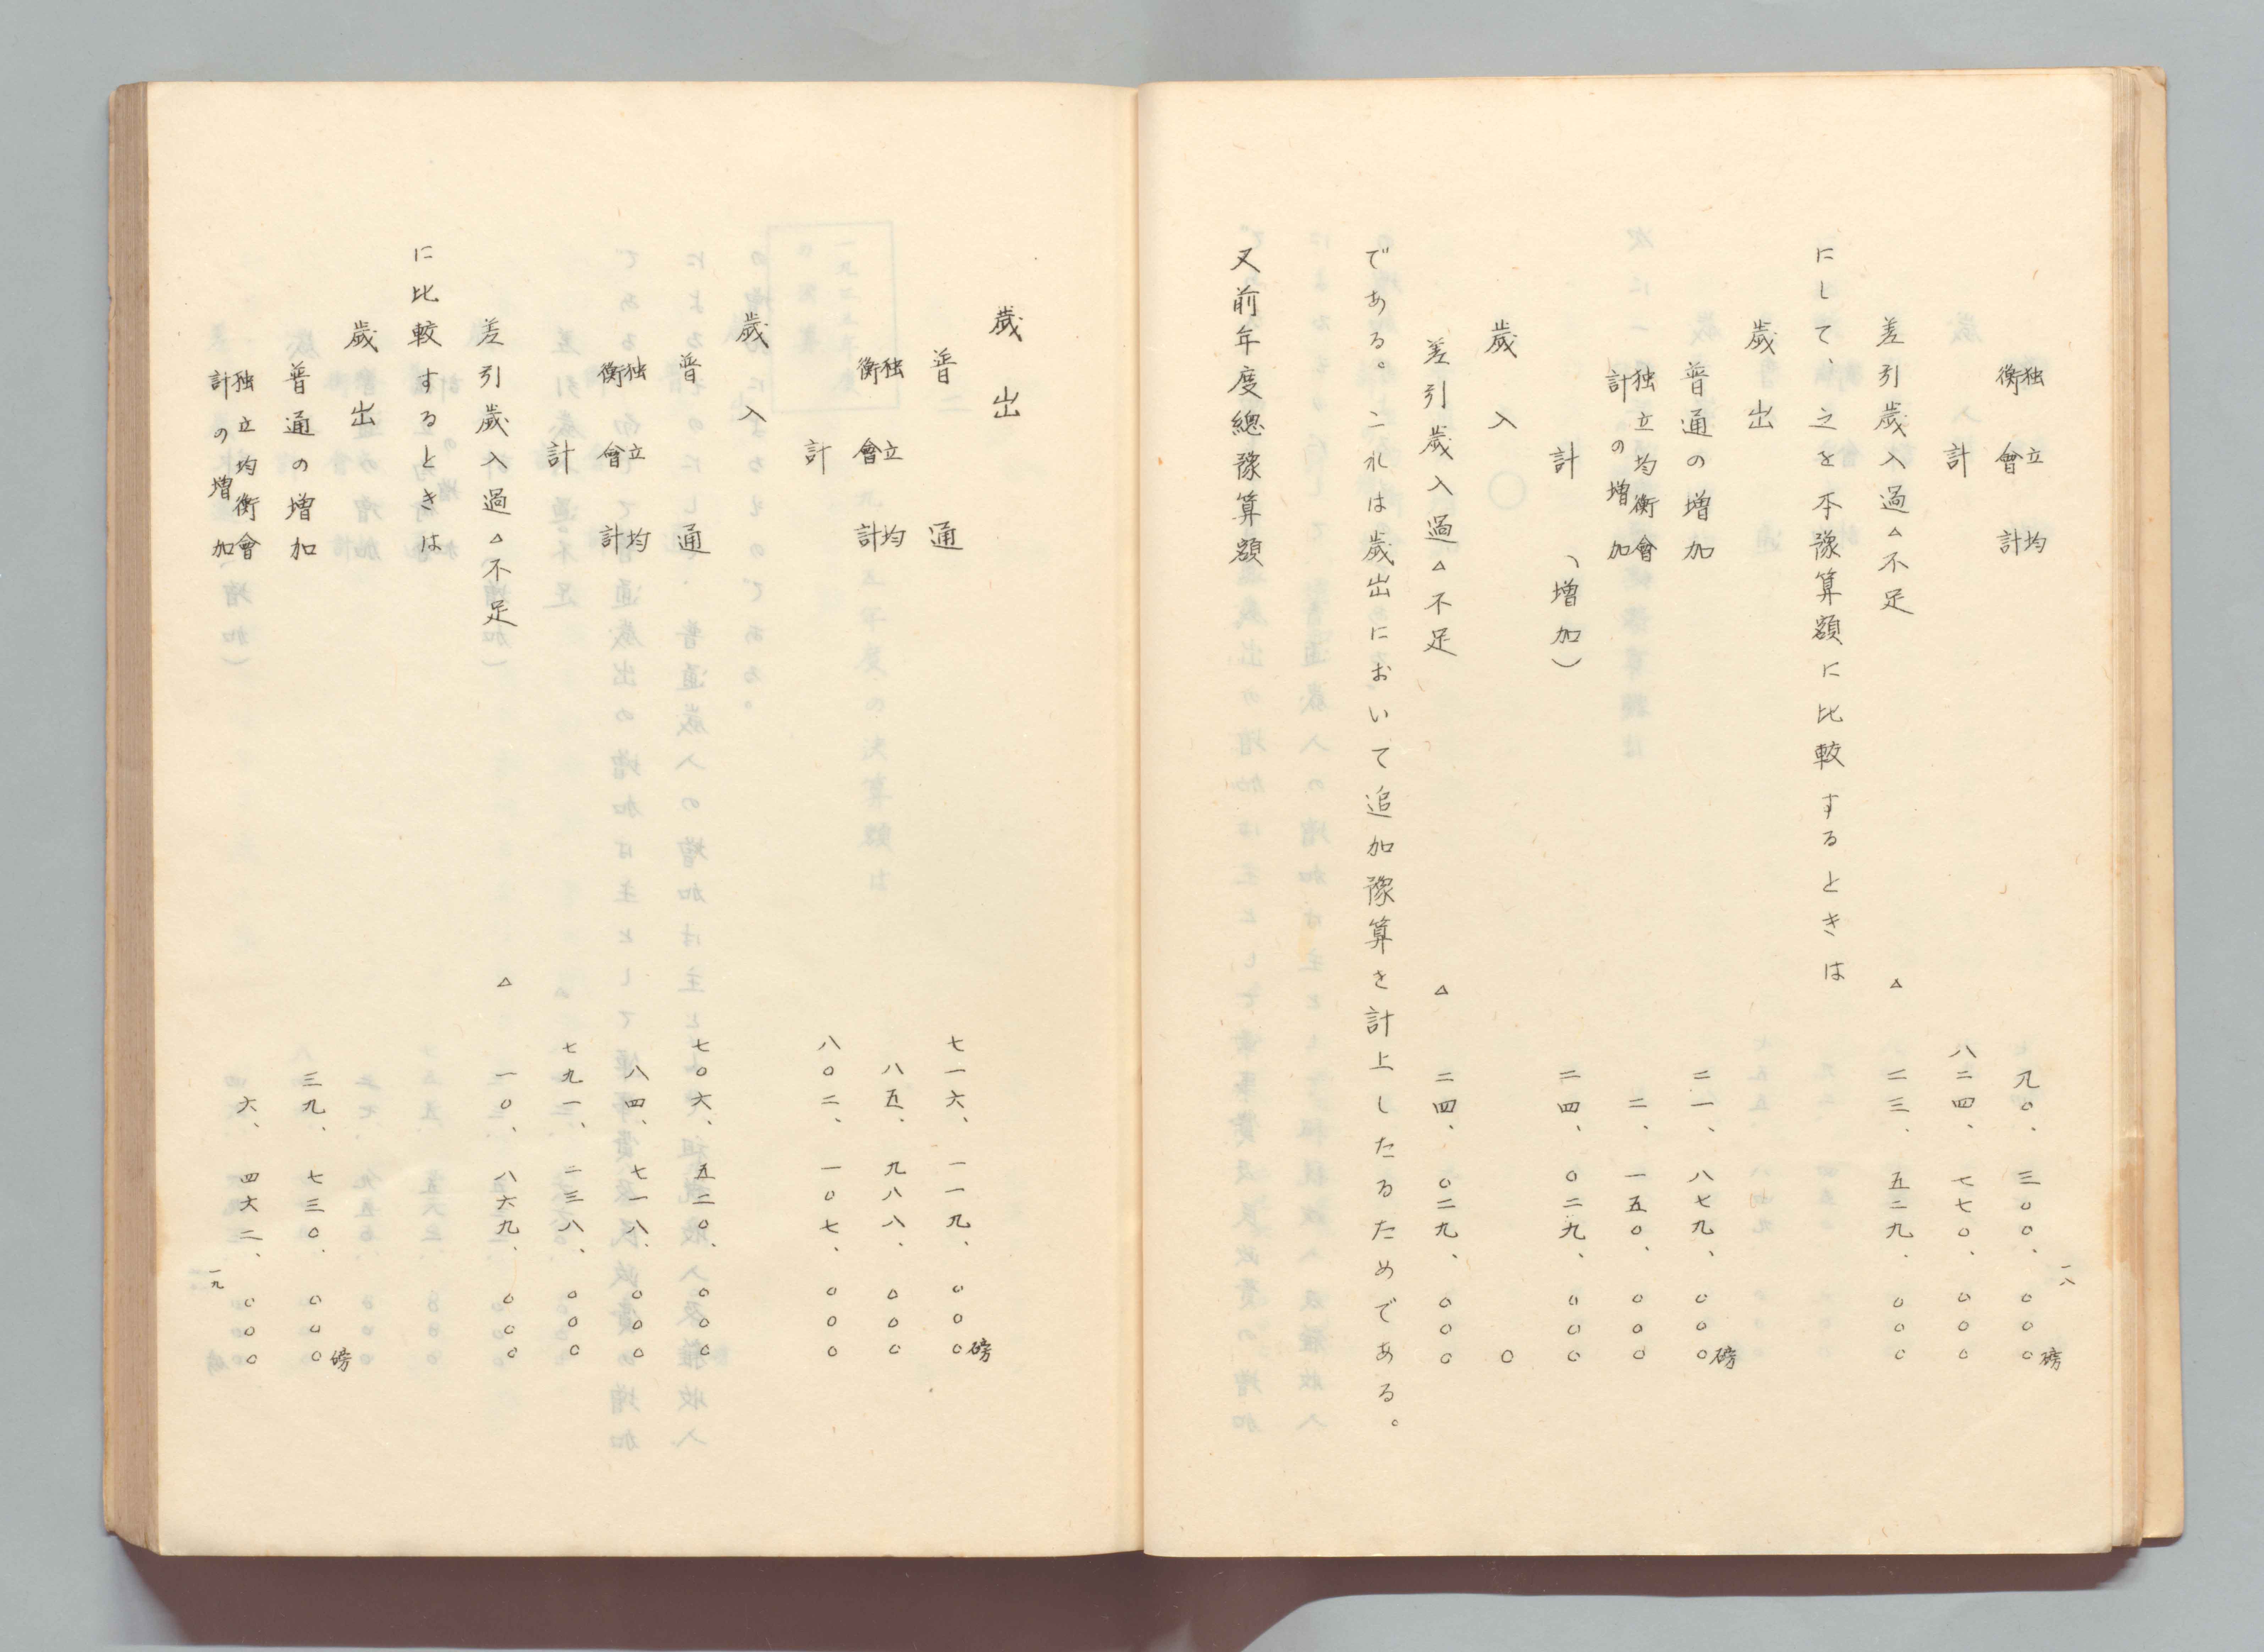 独立均衡會計 九〇、三〇〇、〇〇〇磅
計 八二四、七七〇、〇〇〇
差引歳入過△不足 △二三、五二九、〇〇〇
にして、之を本豫算額に比較するときは
歳出
普通の増加 二一、八七九、〇〇〇磅
独立均衡會計の増加 二、一五〇、〇〇〇
計 、増加) 二四、〇二九、〇〇〇
歳入 〇
差引歳入過△不足 △二四、〇二九、〇〇〇
である。二れは歳出において追加豫算を計上したるためである。
又前年度總豫算額
一八
歳出
普通 七一六、一一九、〇〇〇磅
独立均衡會計 八五、九八八、〇〇〇
計 八〇二、一〇七、〇〇〇
歳入
普通 七〇六、五二〇、〇〇〇
独立均衡會計 八四、七一八、〇〇〇
計 七九一、二三八、〇〇〇
差引歳入過△不足 △一〇、八六九、〇〇〇
に比較するときは
歳出
普通の増加 三九、七三〇、〇〇〇磅
独立均衡會計の増加 六、四六二、〇〇〇
一九